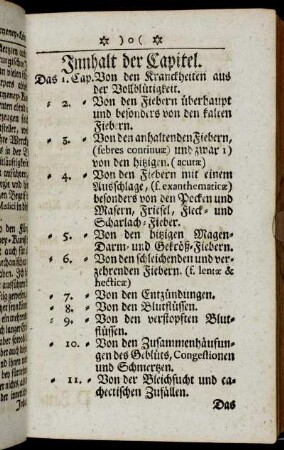 ✡ ) o ( ✡
Innhalt der Capitel.
Das 1. Cap. Von den Kranckheiten aus
der Vollblütigkeit.
= 2. = Von den Fiebern überhaupt
und besonders von den kalten
Fiebern.
= 3. = Von den anhaltenden Fiebern,
(febres continuæ) und zwar 1)
von den hitzigen. (acutæ)
= 4. = Von den Fiebern mit einem
Ausschlage, (f. exanthematicæ)
besonders von den Pocken und
Masern, Friesel, Fleck- und
Scharlach-Fieber.
= 5. = Von den hitzigen Magen-
Darm- und Gekröß-Fiebern.
= 6. = Von den schleichenden und ver-
zehrenden Fiebern. (f. lentæ &
hecticæ)
= 7. = Von den Entzündungen.
= 8. = Von den Blutflüssen.
= 9. = Von den verstopften Blut-
flüssen.
= 10. = Von den Zusammenhäufun-
gen des Geblüts, Congestionen
und Schmertzen.
= 11. = Von der Bleichsucht und ca-
chectischen Zufällen.
Das